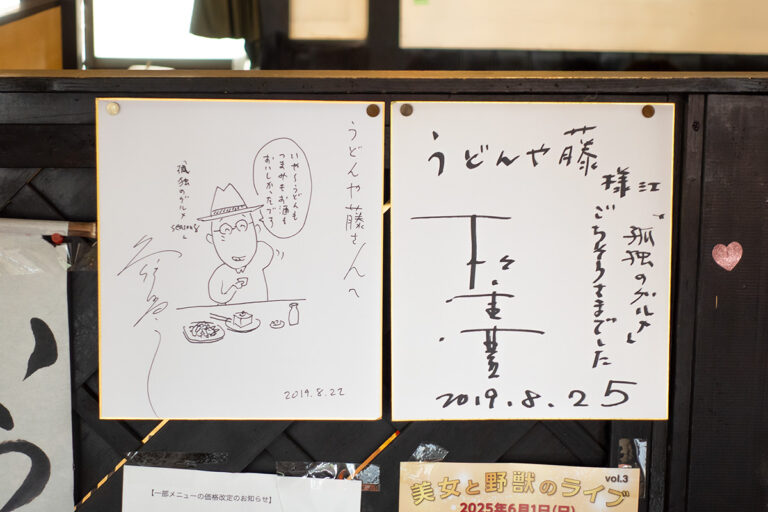 うどんや藤さんへ
いやーうどんも
つまみもお酒も
おいしかったでス
『孤独のグルメ
season8』
2019.8.22
うどんや藤
様江
『孤独のグルメ』
ごちそうさまでした
松重豊
2019.8.25
【一部メニューの価格改定のお知らせ】
美女と野獣のライブ
vol.3
2025年6月1日(日)